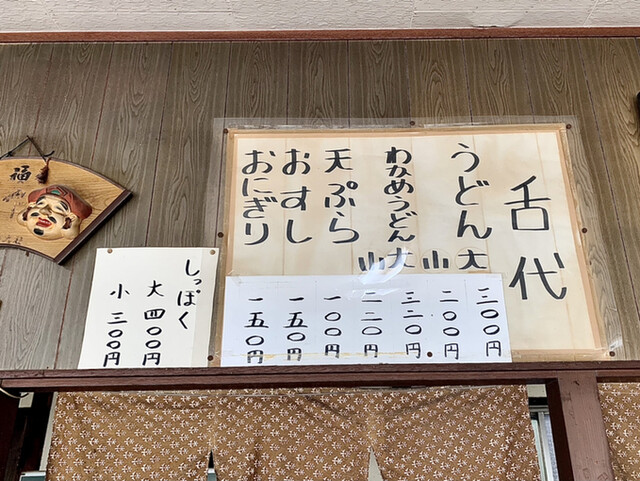 舌代
うどん 大 三〇〇円
小 二〇〇円
わかめうどん 大 三二〇円
小 二二〇円
天ぷら 一〇〇円
おすし 一五〇円
おにぎり 一五〇円
しっぽく
大 四〇〇円
小 三〇〇円
福